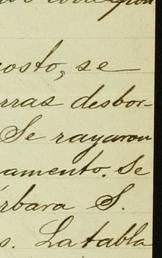 osto, se
rras desbor-
Se rayaron
amento. Se
rbara S.
s. La tabla